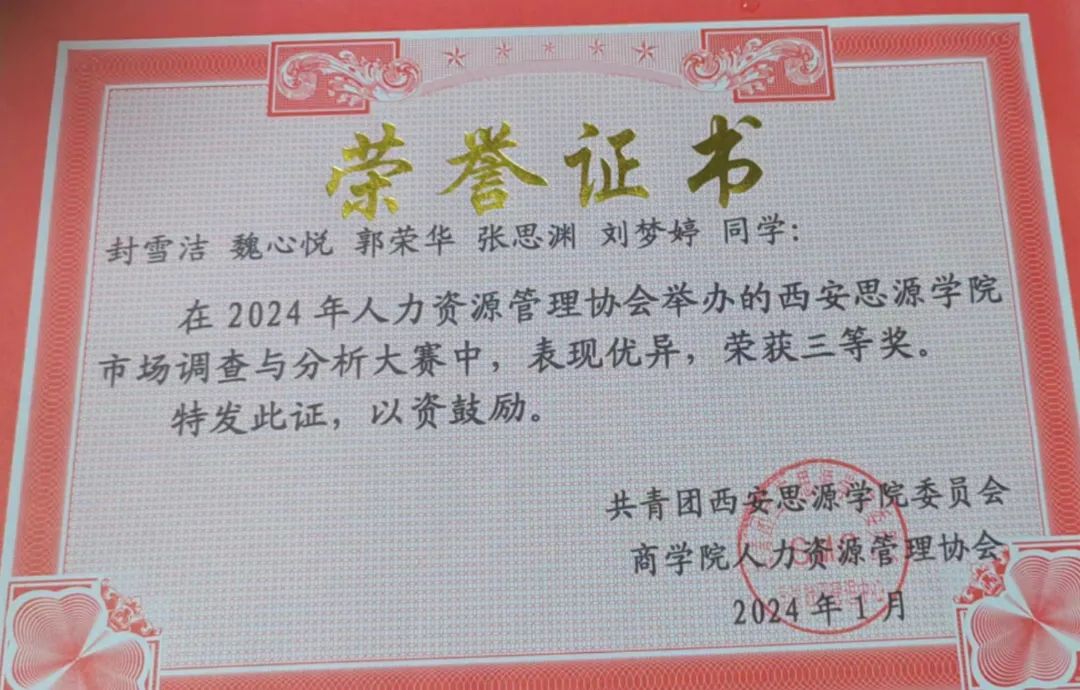 荣誉证书
封雪洁 魏心悦 郭荣华 张思渊 刘梦婷 同学：
在 2024 年人力资源管理协会举办的西安思源学院
市场调查与分析大赛中，表现优异，荣获三等奖。
特发此证，以资鼓励。
共青团西安思源学院委员会
商学院人力资源管理协会
2024 年 1 月